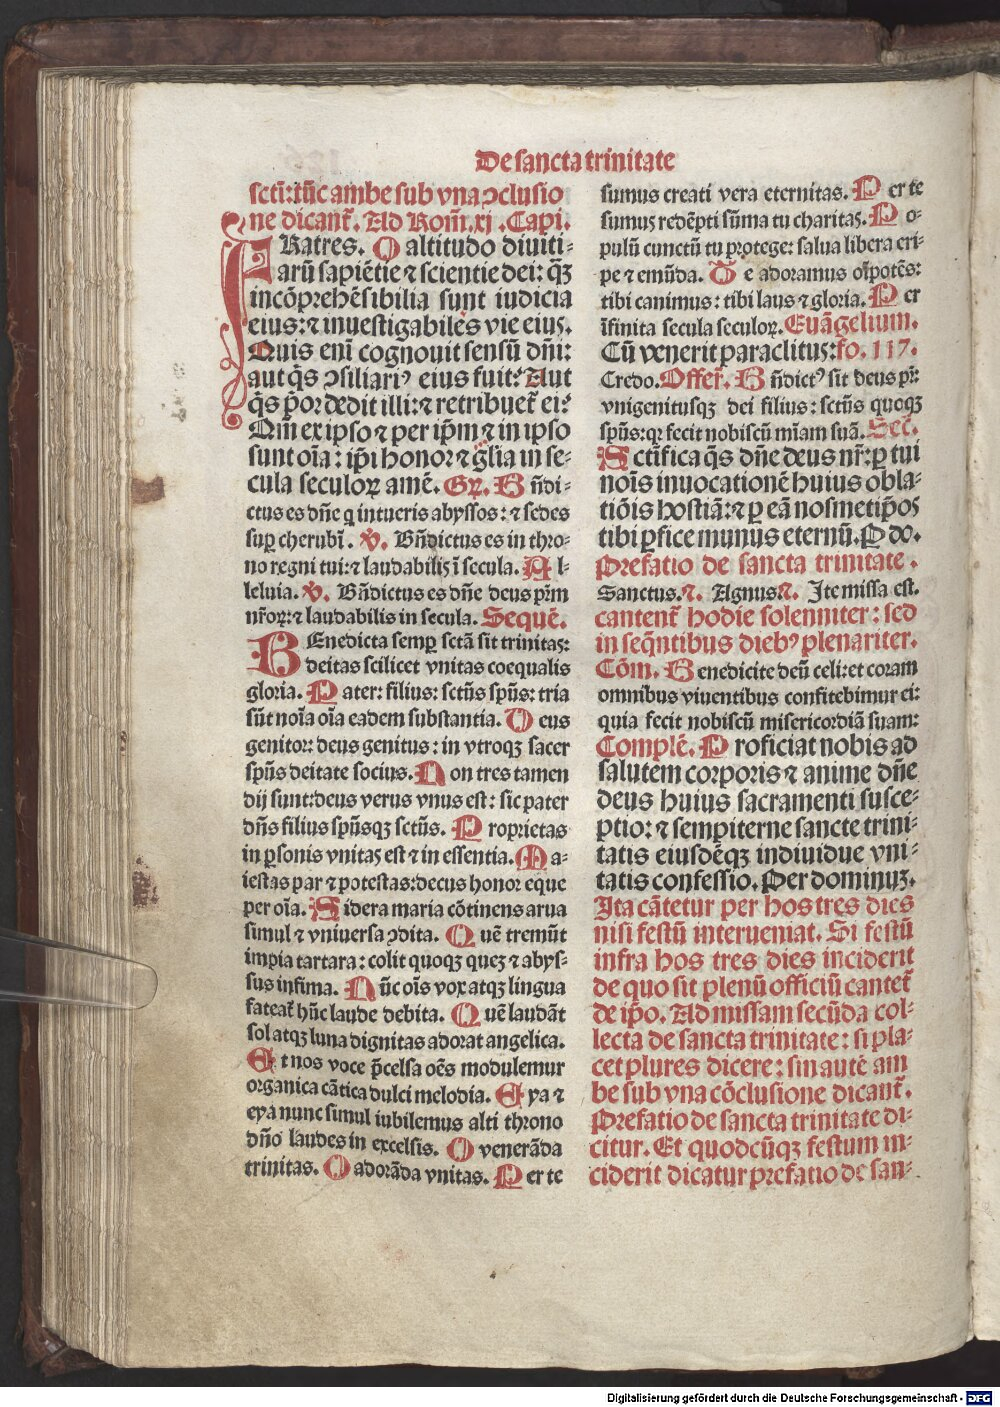 De sancta trinitate
sctī: tūc ambe sub vna ↄclusio
ne dicant᷑. Ad Rom̄. xj. Capi.
FRatres. O altitudo diuiti-
arū sapiētie ⁊ scientie dei: q̄ꝫ
incōprehēsibilia sunt iudicia
eius: ⁊ inuestigabiles vie eiꝰ.
Quis enī cognouit sensū dn̄i:
aut q̄s ↄsiliariꝰ eius fuit? Aut
q̄s p̄or dedit illi: ⁊ retribuet᷑ ei?
Qm̄ ex ipso ⁊ per ip̄m ⁊ in ipso
sunt oīa: ip̄i honor ⁊ gl̄ia in se-
cula seculoꝝ amē. Gr̄. B n̄di-
ctus es dn̄e q intueris abyssos: ⁊ sedes
suꝑ cherubī. ꝟ. Bn̄dictus es in thro-
no regni tui: ⁊ laudabilis ī secula. A l-
leluia. ꝟ. Bn̄dictus es dn̄e deus pr̄m
nr̄oꝝ: ⁊ laudabilis in secula. Sequē.
BEnedicta semꝑ sctā sit trinitas:
deitas scilicet vnitas coequalis
gloria. P ater: filius: sctūs spūs: tria
sūt noīa oīa eadem substantia. D eus
genitor: deus genitus: in vtroqꝫ sacer
spūs deitate socius. N on tres tamen
dij sunt: deus verus vnus est: sic pater
dn̄s filius spūsqꝫ sctūs. P roprietas
in ꝑsonis vnitas est ⁊ in essentia. M a-
iestas par ⁊ potestas: decus honor eque
per oīa. S idera maria cōtinens arua
simul ⁊ vniuersa ↄdita. Q uē tremūt
impia tartara: colit quoqꝫ queꝫ ⁊ abys-
sus infima. N ūc oīs vox atqꝫ lingua
fateat᷑ hūc laude debita. Q uē laudāt
sol atqꝫ luna dignitas adorat angelica.
E t nos voce p̄celsa oēs modulemur
organica cātica dulci melodia. E ya ⁊
eya nunc simul iubilemus alti throno
dn̄o laudes in excelsis. O venerāda
trinitas. O adorāda vnitas. P er te
sumus creati vera eternitas. P er te
sumus redēpti sūma tu charitas. P o-
pulū cunctū tu protege: salua libera eri-
pe ⁊ emūda. T e adoramus oīpotēs:
tibi canimus: tibi laus ⁊ gloria. P er
īfinita secula seculoꝝ. Euāgelium.
Cū venerit paraclitus: fo. 117.
Credo. Offer̄. B n̄dictꝰ sit deus pr̄:
vnigenitusqꝫ dei filius: sctūs quoqꝫ
spūs: qꝛ fecit nobiscū mīam suā. Sec̄.
Sctīfica q̄s dn̄e deus nr̄: ꝑ tui
noīs inuocationē huius obla-
tiōis hostiā: ⁊ ꝑ eā nosmetip̄os
tibi ꝑfice munus eternū. P do.
Prefatio de sancta trinitate.
Sanctus. ⁊. Agnus ⁊. Ite missa est.
cantent᷑ hodie solenniter: sed
in seq̄ntibus diebꝰ plenariter.
Cōm. B enedicite deū celi: et coram
omnibus viuentibus confitebimur ei:
quia fecit nobiscū misericordiā suam:
Complē. P roficiat nobis ad
salutem corporis ⁊ anime dn̄e
deus huius sacramenti susce-
ptio: ⁊ sempiterne sancte trini-
tatis eiusdēqꝫ indiuidue vni-
tatis confessio. Per dominuꝫ.
Ita cātetur per hos tres dies
nisi festū interueniat. Si festū
infra hos tres dies inciderit
de quo sit plenū officiū cantet᷑
de ip̄o. Ad missam secūda col-
lecta de sancta trinitate: si pla-
cet plures dicere: sin autē am
be sub vna cōclusione dicant᷑.
Prefatio de sancta trinitate di-
citur. Et quodcūqꝫ festum in-
ciderit dicatur prefatio de san-
Digitalisierung gefördert durch die Deutsche Forschungsgemeinschaft - DFG